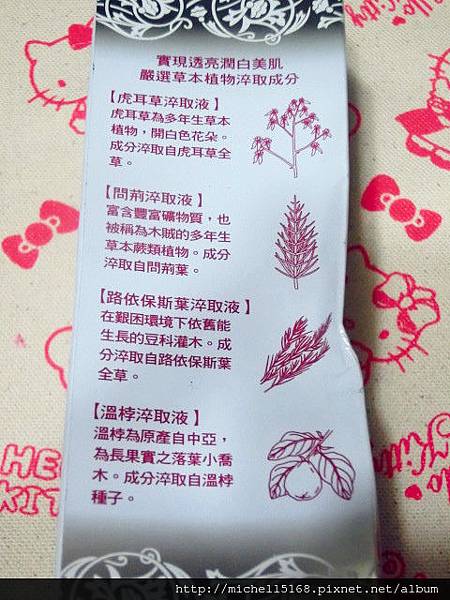 實現透亮潤白美肌
嚴選草本植物淬取成分
【虎耳草淬取液】
虎耳草為多年生草本
植物，開白色花朵。
成分淬取自虎耳草全
草。
【問荊淬取液】
富含豐富礦物質，也
被稱為木賊的多年生
草本蕨類植物。成分
淬取自問荊葉。
【路依保斯葉淬取液】
在艱困環境下依舊能
生長的豆科灌木。成
分淬取自路依保斯葉
全草。
【溫桲淬取液】
溫桲為原產自中亞，
為長果實之落葉小喬
木。成分淬取自溫桲
種子。
HELLO
KITTY
Kitty
http://michell5168.pixnet.net/album